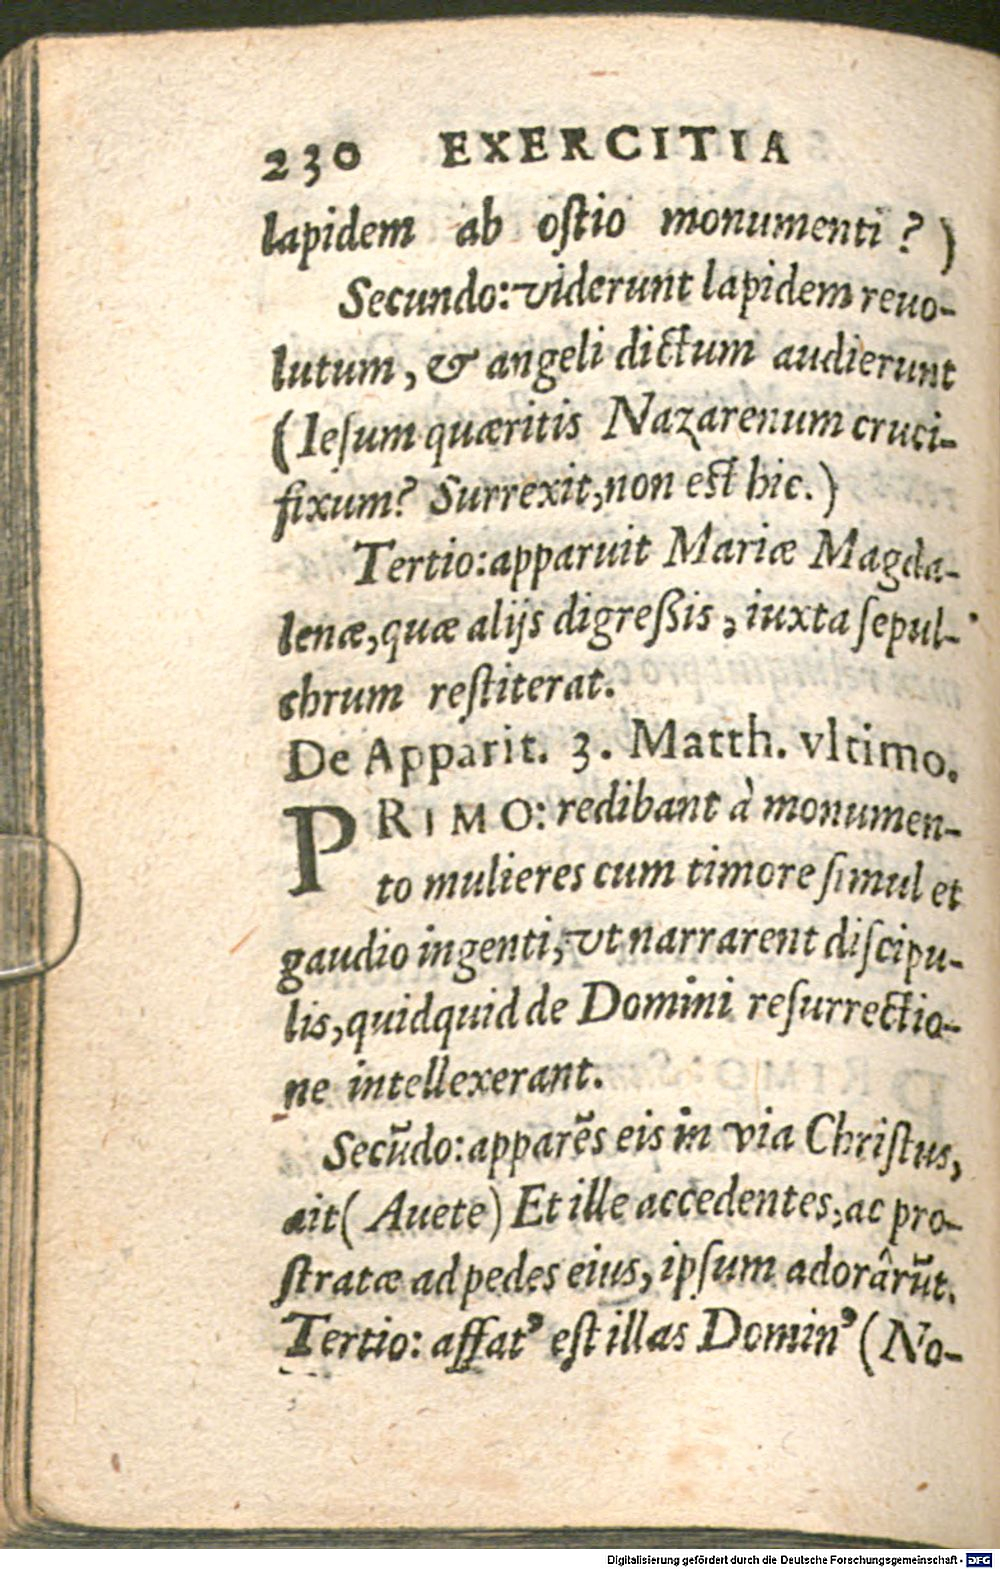 230 EXERCITIA
lapidem ab ostio monumenti ? )
Secundo: viderunt lapidem reuo-
lutum, & angeli dictum audierunt
(Iesum quæritis Nazarenum cruci-
fixum? Surrexit, non est hic.)
Tertio: apparuit Mariæ Magda-
lenæ, quæ alijs digressis, iuxta sepul-
chrum restiterat.
De Apparit. 3. Matth. vltimo.
PRIMO: redibant à monumen-
to mulieres cum timore simul et
gaudio ingenti, vt narrarent discipu-
lis, quidquid de Domini resurrectio-
ne intellexerant.
Secūdo: apparēs eis in via Christus,
ait ( Auete) Et ille accedentes, ac pro-
stratæ ad pedes eius, ipsum adorârūt.
Tertio: affatꝰ est illas Dominꝰ (No-
Digitalisierung gefördert durch die Deutsche Forschungsgemeinschaft - DFG